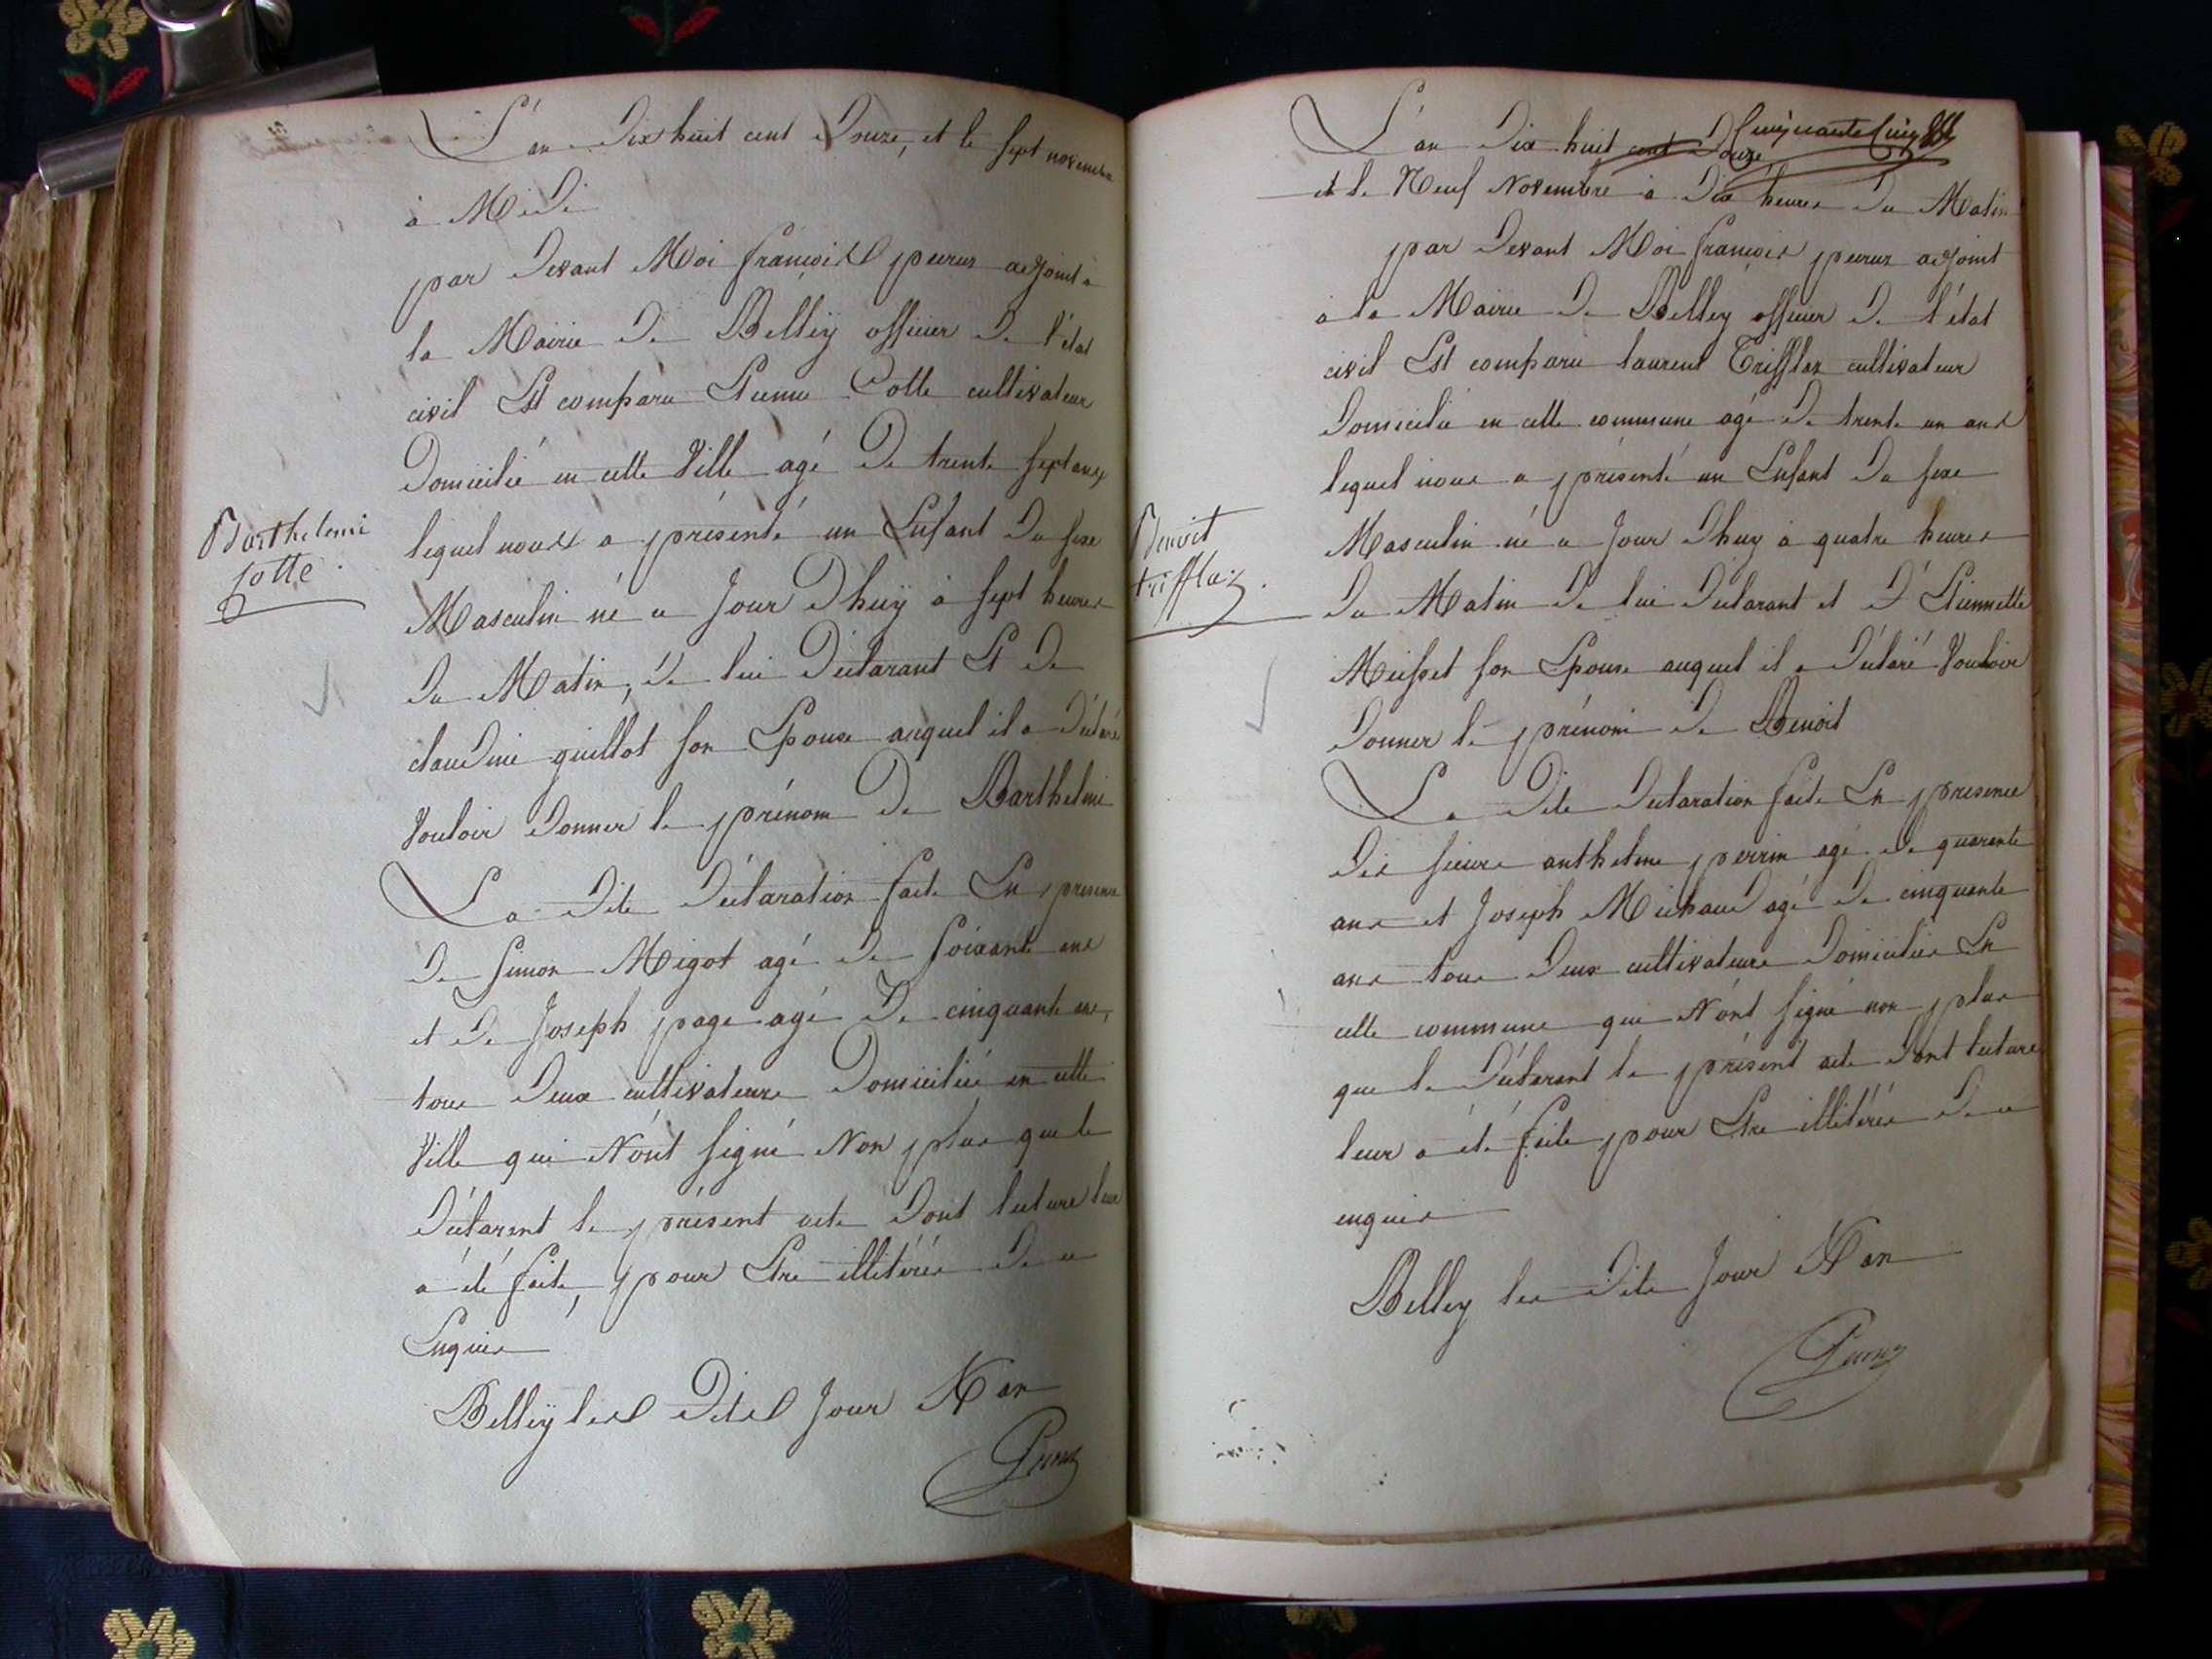 L'an Dix huit cent Douze, et le sept novembre
à Midi
par Devant Moi françois peuruz adjoint à
la Mairie De Belleÿ officier De l'état
civil Est comparu Etienne Cotte cultivateur
Domicilié en cette Ville agé De trente sept ans
lequel nous a présenté un Enfant Du sexe
Barthelemi
Cotte
Masculin né a Jour Dhuÿ à sept heures
Du Matin, De lui Déclarant Et De
claudine guillot son Epouse auquel il a Déclaré
Vouloir Donner le prénom De Barthelmi
La Dite Déclaration faite En présence
De simon Migot agé De soixante ans
et De Joseph page agé De cinquante ans,
tous Deux cultivateurs Domicilié en cette
Ville qui N'ont signé Non plus que le
Déclarent le présent acte Dont lecture leur
a été faite, pour Etre illitérés De ce
Enquis
Belleÿ les Dits Jour X an
L'an Dix huit cent Douze
Cinquante Cinq
et le Neuf Novembre à Dix heures Du Matin
par Devant Moi françois peuruz adjoint
à la Mairie De Belley officier De l'état
civil Est comparu laurent Trifflaz cultivateur
Domicilié en cette commune agé De trente un ans
lequel nous a présenté un Enfant Du sexe
Benoit
trifflaz
Masculin né a Jour Dhuy à quatre heures
Du Matin De lui Déclarant et D'Etiennette
son Epouse auquel il a Déclaré Vouloir
Donner le prénom De Benoit
La Dite Déclaration faite En présence
Des sieurs anthelme perrin agé De quarente
ans et Joseph Michaud agé De cinquante
ans tous Deux cultivateurs Domiciliés En
cette commune qui N'ont signé non plus
que le Déclarent le présent acte Dont lecture
leur a été faite pour Etre illitérés De ce
enquis
Belley les Dits Jour X an